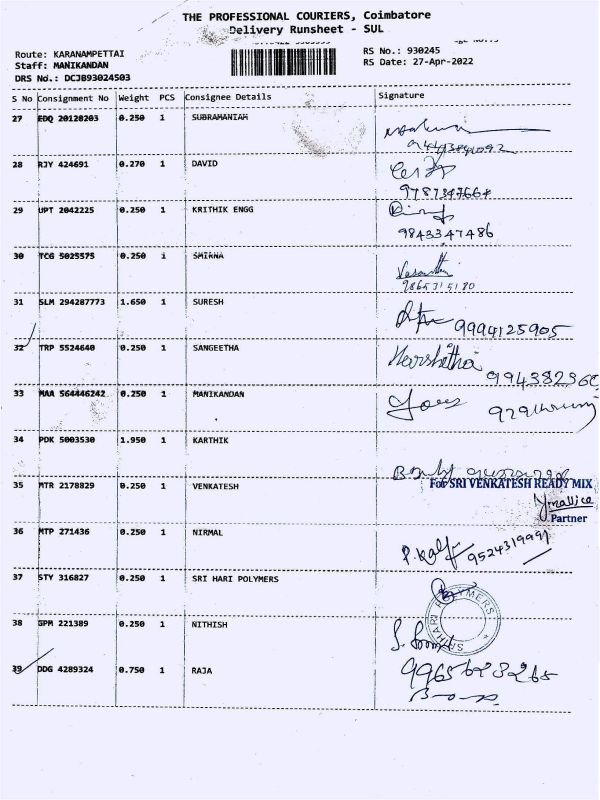 THE PROFESSIONAL COURIERS, Coimbatore
Delivery Runsheet - SUL
Route: KARANAMPETTAI
Staff: MANIKANDAN
DRS No.: DCJB93024503
RS No.: 930245
RS Date: 27-Apr-2022
S No Consignment No Weight PCS Consignee Details Signature
27 EDQ 20128203 0.250 1 SUBRAMANIAM
28 RJY 424691 0.270 1 DAVID
9787397664
29 UPT 2042225 0.250 1 KRITHIK ENGG
9843347486
30 TCG 5025575 0.250 1 SMIRNA
Vasanthi
31 SLM 294287773 1.650 1 SURESH
9994125905
32 TRP 5524640 0.250 1 SANGEETHA
Harshitha
33 MAA 564446242 0.250 1 MANIKANDAN
34 PDK 5003530 1.950 1 KARTHIK
35 MTR 2178829 0.250 1 VENKATESH
For SRI VENKATESH READY MIX
Partner
36 MTP 271436 0.250 1 NIRMAL
9524319991
37 STY 316827 0.250 1 SRI HARI POLYMERS
SRIHARI POLYMERS
38 GPM 221389 0.250 1 NITHISH
39 DDG 4289324 0.750 1 RAJA
9965628265